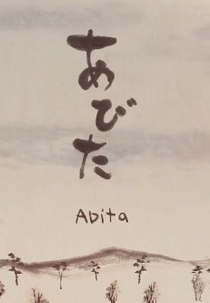 あびた
Abita